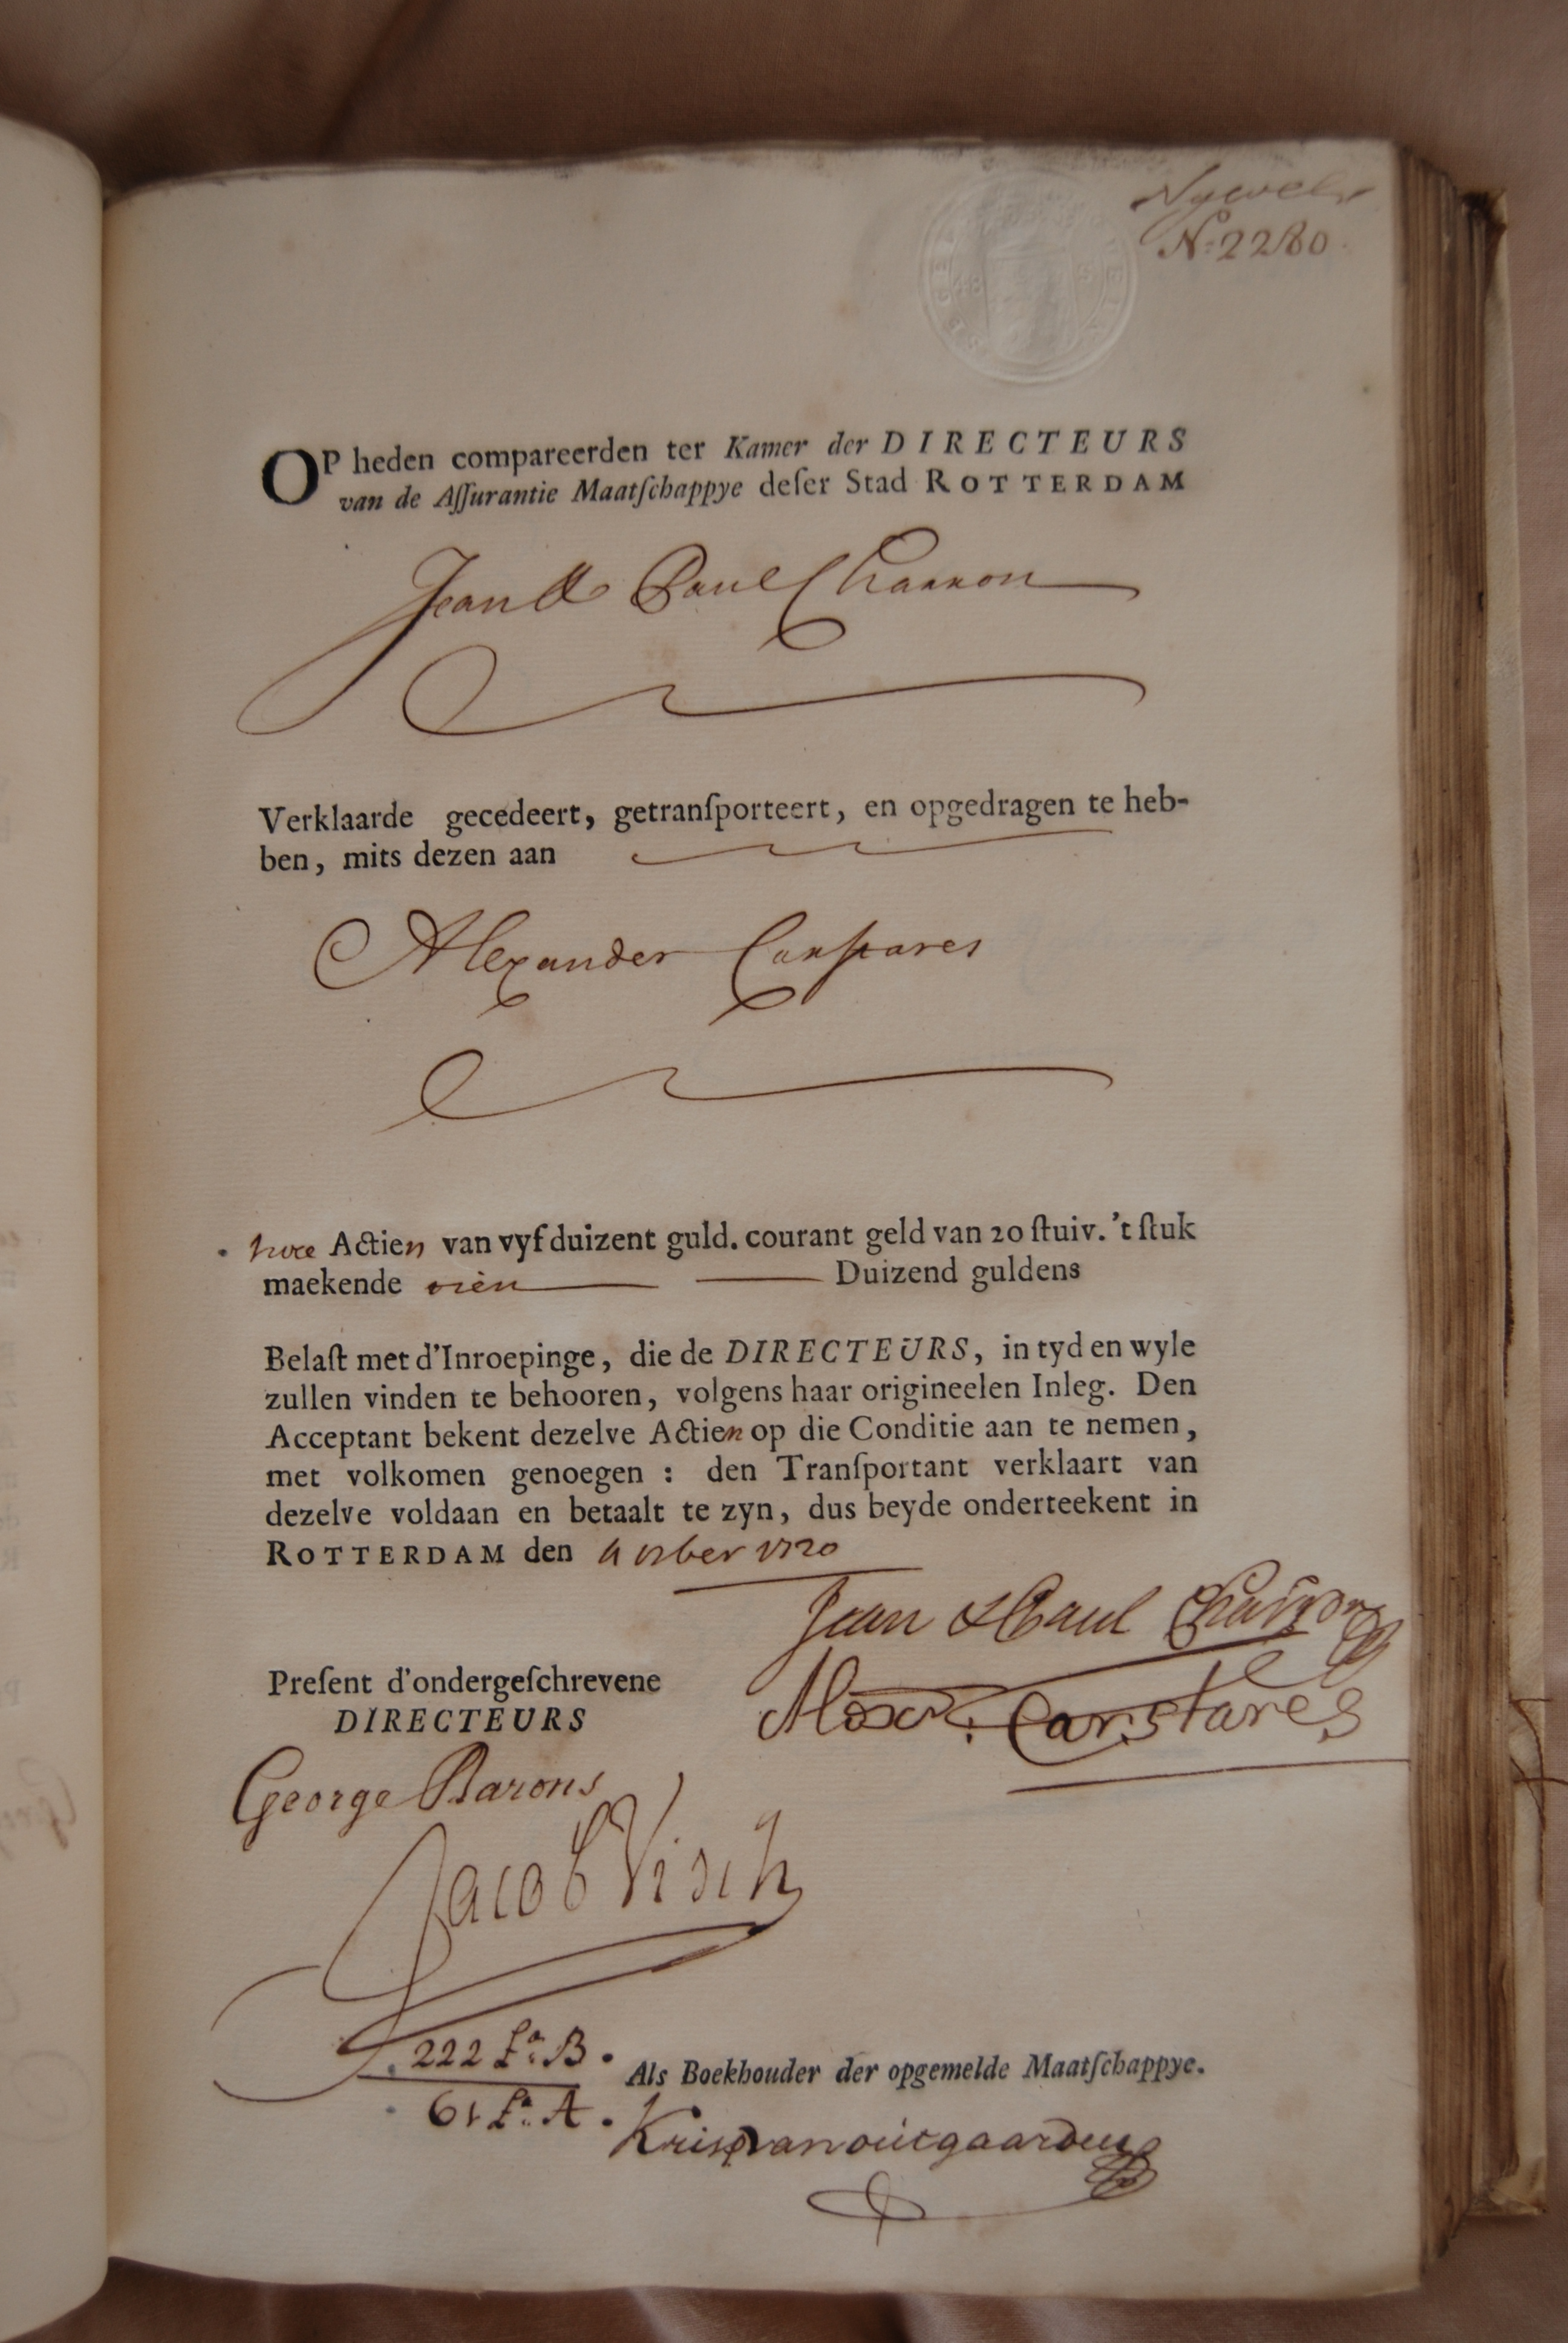 N:2280
OP heden compareerden ter Kamer der DIRECTEURS
van de Aſſurantie Maatſchappye deſer Stad ROTTERDAM
Jean & Paul Charron
Verklaarde gecedeert, getranſporteert, en opgedragen te heb-
ben, mits dezen aan
Alexander Carstares
twee Actien van vyf duizent guld. courant geld van 20 ſtuiv. 't ſtuk
maekende tien Duizend guldens
Belaſt met d'Inroepinge, die de DIRECTEURS, in tyd en wyle
zullen vinden te behooren, volgens haar origineelen Inleg. Den
Acceptant bekent dezelve Actien op die Conditie aan te nemen,
met volkomen genoegen : den Tranſportant verklaart van
dezelve voldaan en betaalt te zyn, dus beyde onderteekent in
ROTTERDAM den 1720
Jean & Paul Charron
Alexr. Carstares
Preſent d'ondergeſchrevene
DIRECTEURS
George Barons
Jacob Visch
222 La. B.
61 La. A.
Als Boekhouder der opgemelde Maatſchappye.